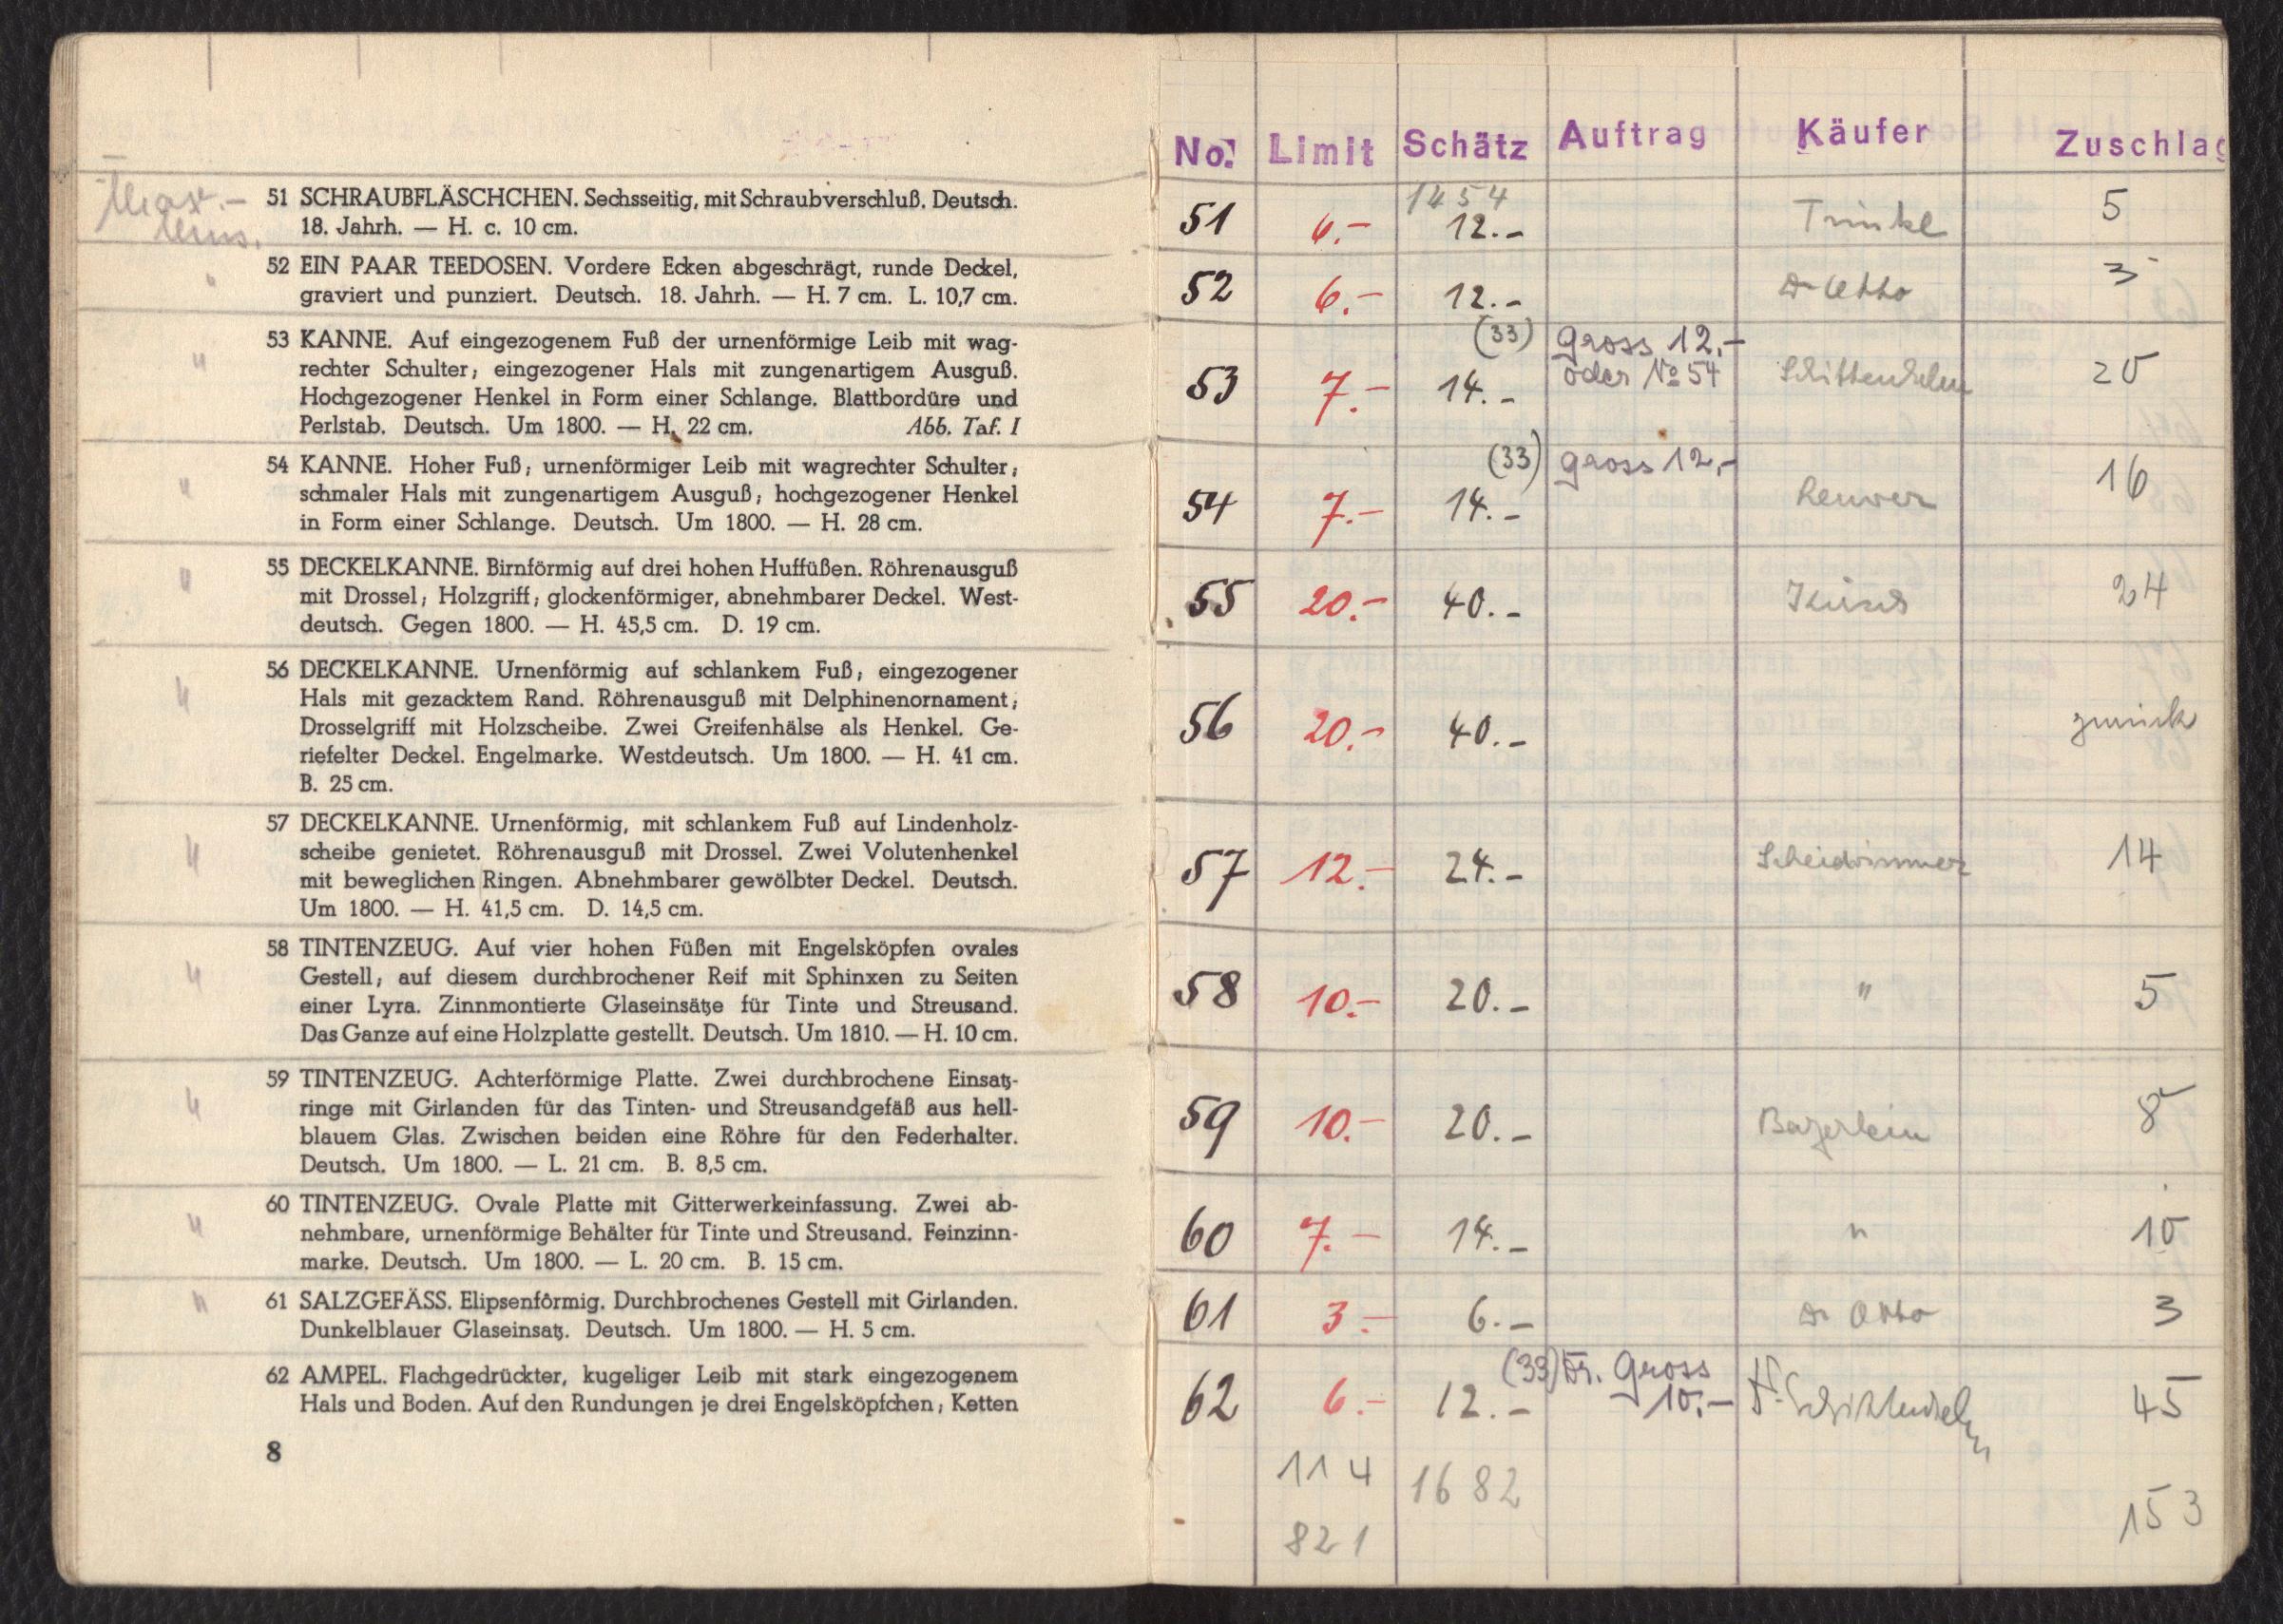 51 SCHRAUBFLÄSCHCHEN. Sechsseitig, mit Schraubverschluß. Deutsch.
18. Jahrh. — H. c. 10 cm.
52 EIN PAAR TEEDOSEN. Vordere Ecken abgeschrägt, runde Deckel,
graviert und punziert. Deutsch. 18. Jahrh. — H. 7 cm. L. 10,7 cm.
53 KANNE. Auf eingezogenem Fuß der urnenförmige Leib mit wag-
rechter Schulter; eingezogener Hals mit zungenartigem Ausguß.
Hochgezogener Henkel in Form einer Schlange. Blattbordüre und
Perlstab. Deutsch. Um 1800. — H. 22 cm. Abb. Taf. I
54 KANNE. Hoher Fuß; urnenförmiger Leib mit wagrechter Schulter;
schmaler Hals mit zungenartigem Ausguß; hochgezogener Henkel
in Form einer Schlange. Deutsch. Um 1800. — H. 28 cm.
55 DECKELKANNE. Birnförmig auf drei hohen Huffüßen. Röhrenausguß
mit Drossel; Holzgriff; glockenförmiger, abnehmbarer Deckel. West-
deutsch. Gegen 1800. — H. 45,5 cm. D. 19 cm.
56 DECKELKANNE. Urnenförmig auf schlankem Fuß; eingezogener
Hals mit gezacktem Rand. Röhrenausguß mit Delphinenornament;
Drosselgriff mit Holzscheibe. Zwei Greifenhälse als Henkel. Ge-
riefelter Deckel. Engelmarke. Westdeutsch. Um 1800. — H. 41 cm.
B. 25 cm.
57 DECKELKANNE. Urnenförmig, mit schlankem Fuß auf Lindenholz-
scheibe genietet. Röhrenausguß mit Drossel. Zwei Volutenhenkel
mit beweglichen Ringen. Abnehmbarer gewölbter Deckel. Deutsch.
Um 1800. — H. 41,5 cm. D. 14,5 cm.
58 TINTENZEUG. Auf vier hohen Füßen mit Engelsköpfen ovales
Gestell; auf diesem durchbrochener Reif mit Sphinxen zu Seiten
einer Lyra. Zinnmontierte Glaseinsätze für Tinte und Streusand.
Das Ganze auf eine Holzplatte gestellt. Deutsch. Um 1810. — H. 10 cm.
59 TINTENZEUG. Achterförmige Platte. Zwei durchbrochene Einsatz-
ringe mit Girlanden für das Tinten- und Streusandgefäß aus hell-
blauem Glas. Zwischen beiden eine Röhre für den Federhalter.
Deutsch. Um 1800. — L. 21 cm. B. 8,5 cm.
60 TINTENZEUG. Ovale Platte mit Gitterwerkeinfassung. Zwei ab-
nehmbare, urnenförmige Behälter für Tinte und Streusand. Feinzinn-
marke. Deutsch. Um 1800. — L. 20 cm. B. 15 cm.
61 SALZGEFÄSS. Elipsenförmig. Durchbrochenes Gestell mit Girlanden.
Dunkelblauer Glaseinsatz. Deutsch. Um 1800. — H. 5 cm.
62 AMPEL. Flachgedrückter, kugeliger Leib mit stark eingezogenem
Hals und Boden. Auf den Rundungen je drei Engelsköpfchen; Ketten
8
No. Limit Schätz Auftrag Käufer Zuschlag
1454
51 6.- 12.- Trinkl 5
52 6.- 12.- Dr Otto 3
(33) Gross 12.-
oder No 54
53 7.- 14.- 20
(33) Gross 12.-
54 7.- 14.- 16
55 20.- 40.- 24
56 20.- 40.- zurück
57 12.- 24.- 14
58 10.- 20.- " 5
59 10.- 20.- Bayerlein 8
60 7.- 14.- " 10
61 3.- 6.- Dr Otto 3
(33) Dr. Gross
62 6.- 12.- 10.- 45
114 1682
821 153